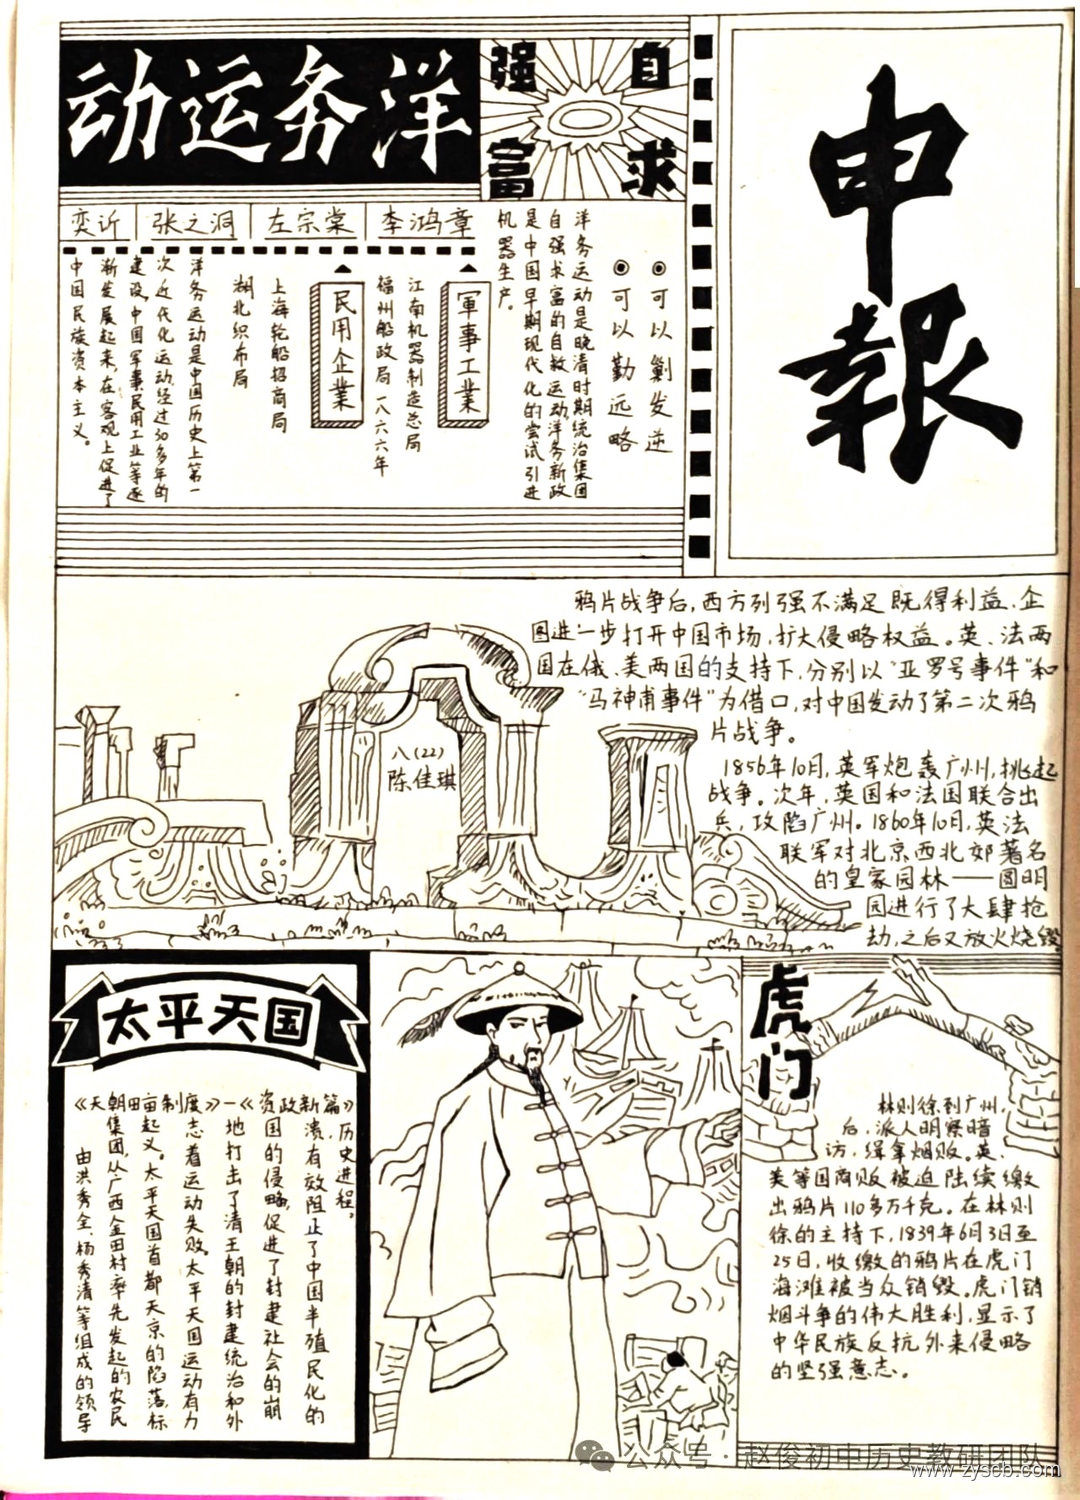 申報
洋务运动
自强
求富
李鸿章
左宗棠
张之洞
奕䜣
可以剿发逆
可以勤远略
洋务运动是晚清时期统治集团
自强求富的自救运动洋务新政
是中国早期现代化的尝试引进
机器生产。
軍事工業
江南机器制造总局
福州船政局一八六六年
民用企業
上海轮船招商局
湖北织布局
洋务运动是中国历史上第一
次近代化运动经过30多年的
建设,中国军事民用工业等逐
渐发展起来,在客观上促进了
中国民族资本主义。
鸦片战争后,西方列强不满足既得利益、企
图进一步打开中国市场,扩大侵略权益。英、法两
国在俄、美两国的支持下,分别以"亚罗号事件"和
"马神甫事件"为借口,对中国发动了第二次鸦
片战争。
1856年10月,英军炮轰广州,挑起
战争。次年,英国和法国联合出
兵,攻陷广州。1860年10月,英法
联军对北京西北郊著名
的皇家园林——圆明
园进行了大肆抢
劫,之后又放火烧毁
八(22)
陈佳琪
太平天国
由洪秀全、杨秀清等组成的领导
集团,从广西金田村率先发起的农民
起义。太平天国首都天京的陷落,标
志着运动失败,太平天国运动有力
地打击了清王朝的封建统治和外
国的侵略,促进了封建社会的崩
溃,有效阻止了中国半殖民化的
历史进程。
《天朝田亩制度》—《资政新篇》
虎门
林则徐到广州
后,派人明察暗
访,缉拿烟贩。英、
美等国商贩被迫陆续缴
出鸦片110多万千克。在林则
徐的主持下,1839年6月3日至
25日,收缴的鸦片在虎门
海滩被当众销毁。虎门销
烟斗争的伟大胜利,显示了
中华民族反抗外来侵略
的坚强意志。
公众号·赵俊初中历史教研团队
www.zyscb.com